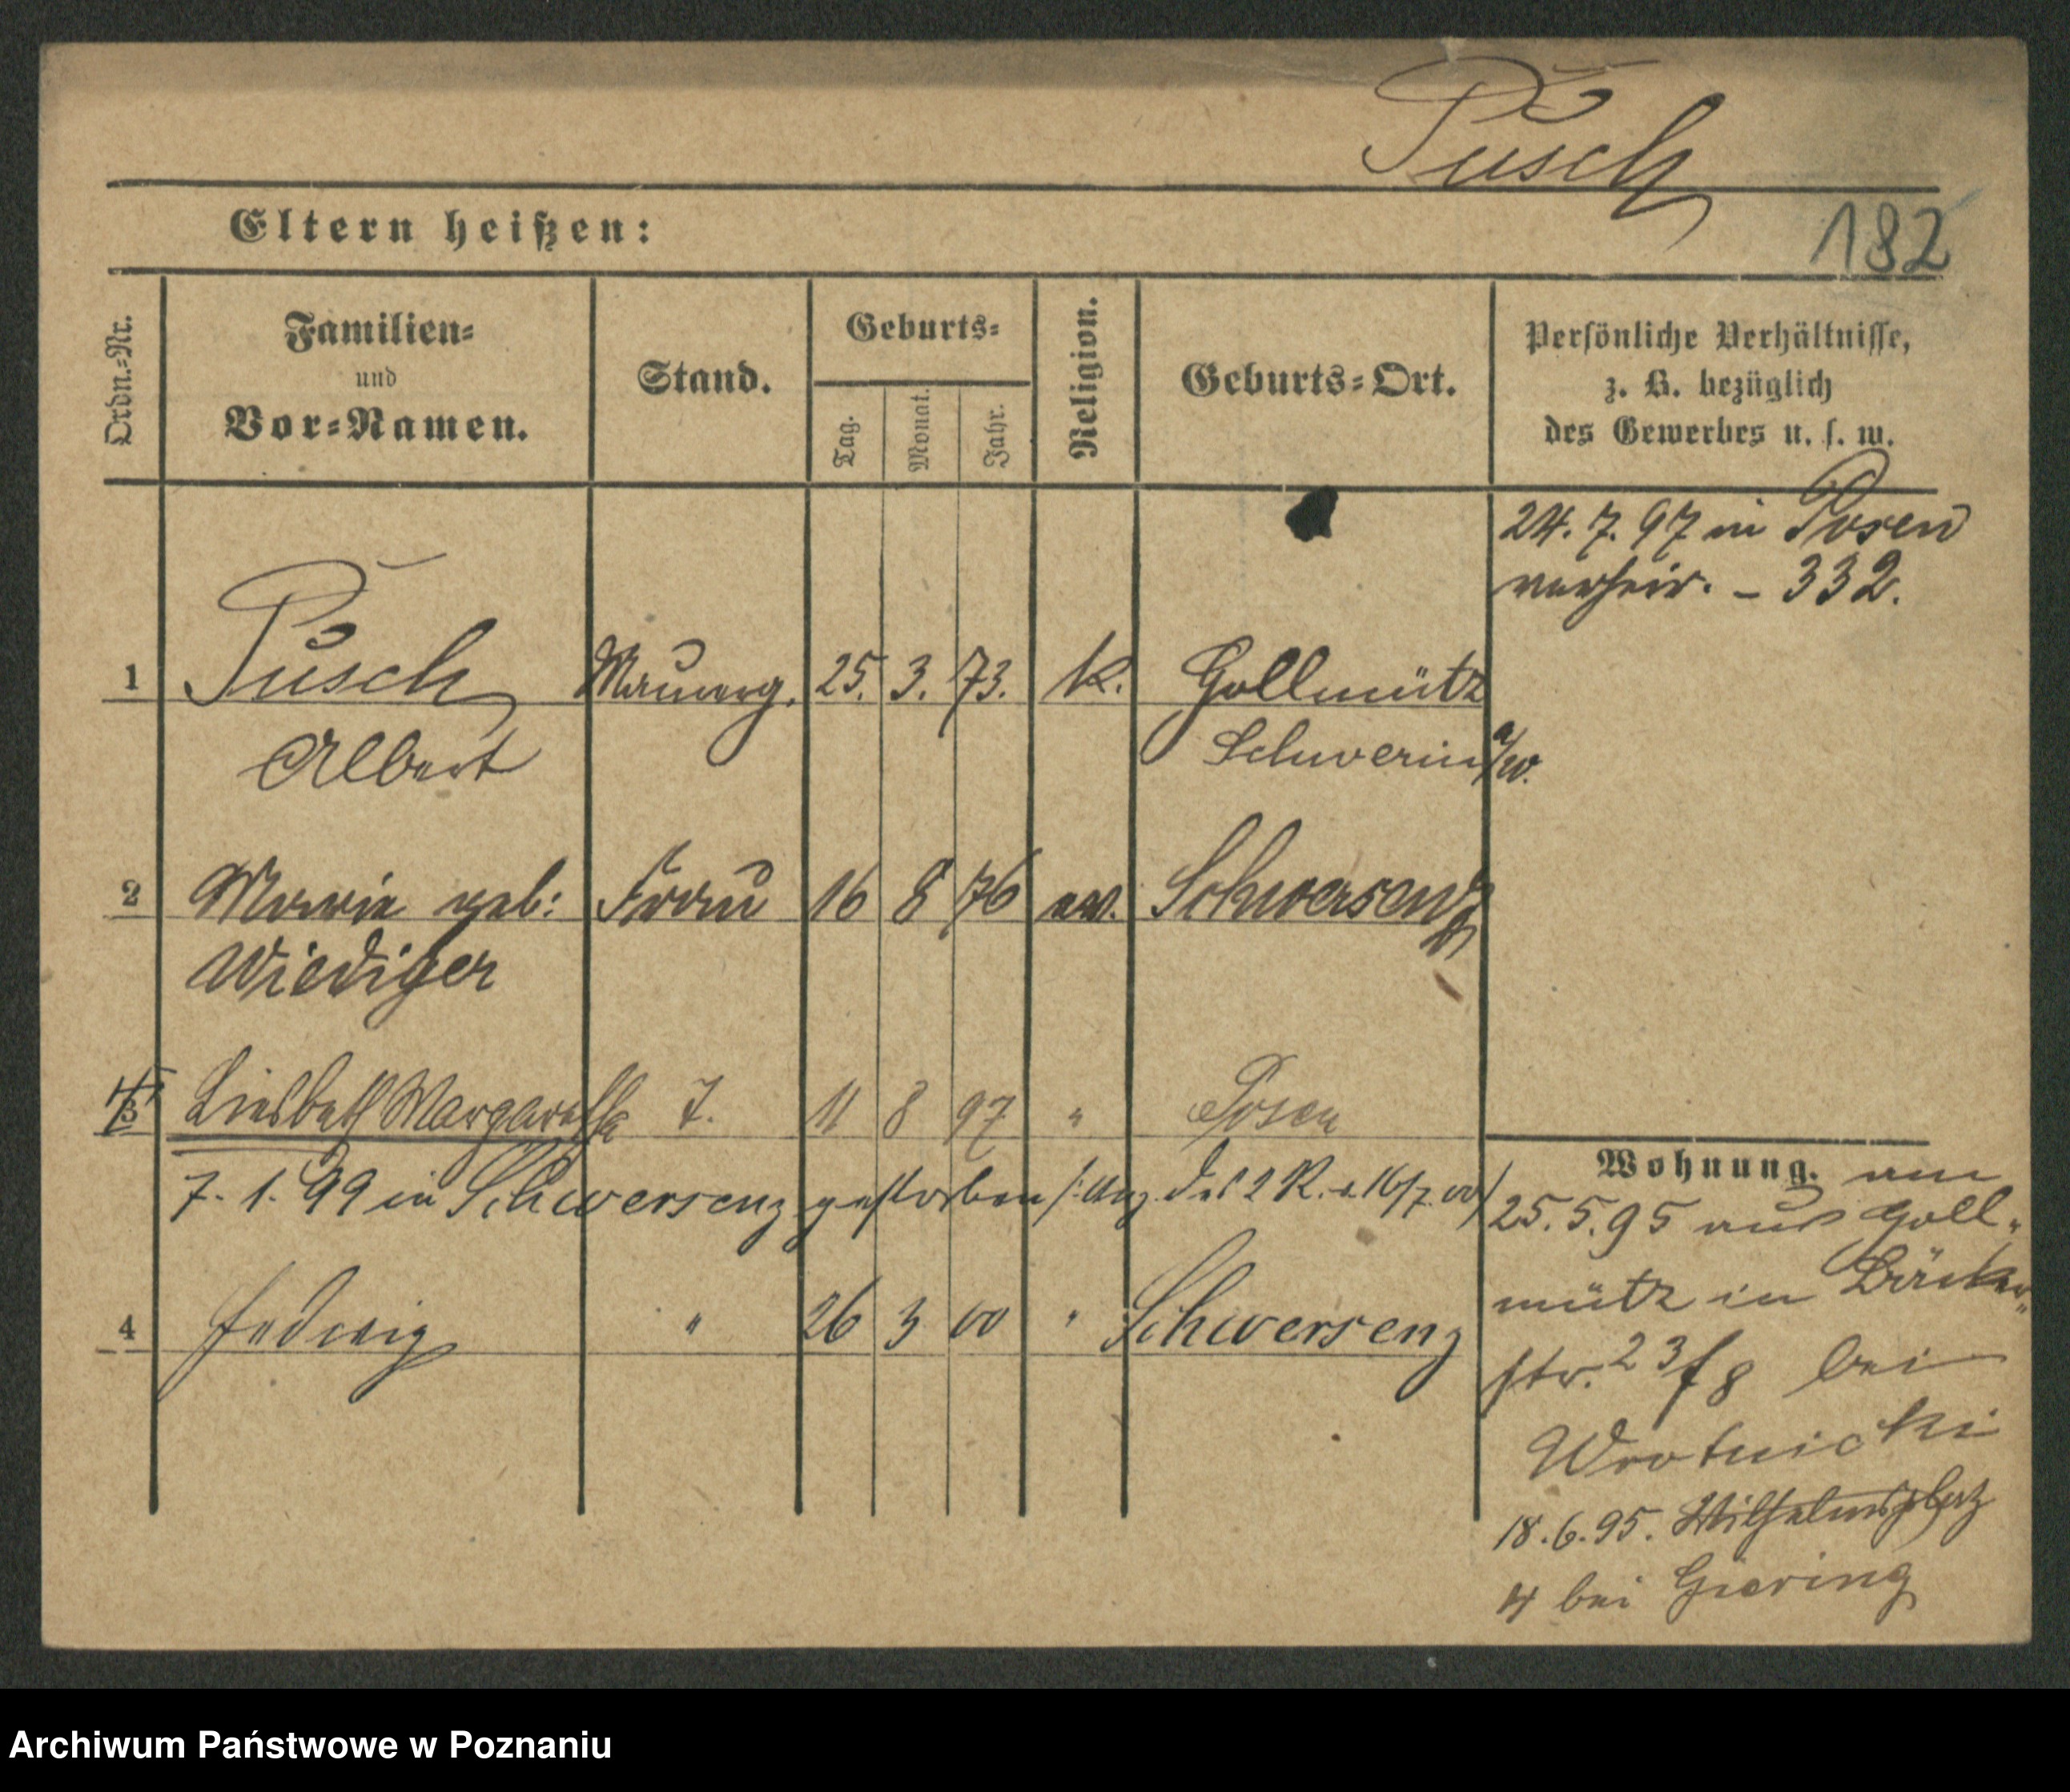 Pusch
182
Eltern heißen:
Ordn.-Nr.
Familien-
und
Vor-Namen.
Stand.
Geburts-
Tag.
Monat.
Jahr.
Religion.
Geburts-Ort.
Persönliche Verhältnisse,
z. B. bezüglich
des Gewerbes u. s. w.
24. 7. 97 in Posen
verheir. – 332.
1 Pusch Maurerg. 25. 3. 73. k. Gollmütz
Albert Schwerin a/W.
2 Marie geb: Frau 16 8 76 ev. Schwersenz
Wiediger
3 Liesbeth Margarethe T. 11 8 97 " Posen
7. 1. 99 in Schwersenz gestorben /: Anz. des 2 R. v. 16/7. 00/
4 Hedwig " 26 3 00 " Schwersenz
Wohnung. am
25. 5. 95 aus Goll-
mütz in Bäcker-
str. 23 f 8 bei
Wrotnicki
18. 6. 95. Wilhelmsplatz
4 bei Giering
Archiwum Państwowe w Poznaniu